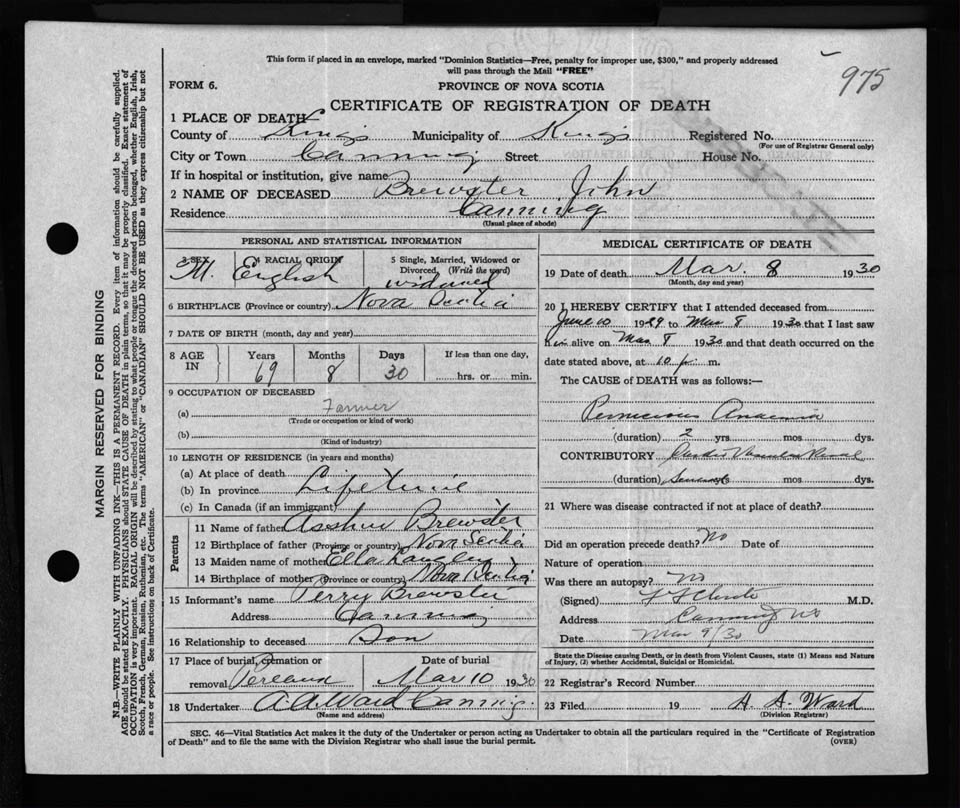 This form if placed in an envelope, marked "Dominion Statistics—Free, penalty for improper use, $300," and properly addressed
will pass through the Mail "FREE"
975
FORM 6.
PROVINCE OF NOVA SCOTIA
CERTIFICATE OF REGISTRATION OF DEATH
1 PLACE OF DEATH
County of Kings Municipality of Kings Registered No.
(For use of Registrar General only)
City or Town Canning Street House No.
If in hospital or institution, give name
2 NAME OF DECEASED Brewster John
Residence Canning
(Usual place of abode)
PERSONAL AND STATISTICAL INFORMATION
3 SEX 4 RACIAL ORIGIN 5 Single, Married, Widowed or
Divorced, (Write the word)
M. English widowed
6 BIRTHPLACE (Province or country) Nova Scotia
7 DATE OF BIRTH (month, day and year)
8 AGE IN Years Months Days If less than one day,
69 8 30 hrs. or min.
9 OCCUPATION OF DECEASED
(a) Farmer
(Trade or occupation or kind of work)
(b)
(Kind of industry)
10 LENGTH OF RESIDENCE (in years and months)
(a) At place of death
(b) In province Lifetime
(c) In Canada (if an immigrant)
Parents
11 Name of father Brewster
12 Birthplace of father (Province or country) Nova Scotia
13 Maiden name of mother Ella
14 Birthplace of mother (Province or country) Nova Scotia
15 Informant's name Perry Brewster
Address Canning
16 Relationship to deceased Son
17 Place of burial, cremation or Date of burial
removal Pereaux Mar 10 1930
18 Undertaker A.A. Ward Canning.
(Name and address)
MEDICAL CERTIFICATE OF DEATH
19 Date of death Mar. 8 1930
(Month, day and year)
20 I HEREBY CERTIFY that I attended deceased from
June 10 1929 to Mar 8 1930 that I last saw
him alive on Mar 8 1930 and that death occurred on the
date stated above, at 10 p. m.
The CAUSE of DEATH was as follows:—
Pernicious Anaemia
(duration) 2 yrs mos dys.
CONTRIBUTORY Cardio Vascular Renal
(duration) Several yrs mos dys.
21 Where was disease contracted if not at place of death?
Did an operation precede death? No Date of
Nature of operation
Was there an autopsy? no
(Signed) M.D.
Address Canning NS
Date Mar 9/30
State the Disease causing Death, or in death from Violent Causes, state (1) Means and Nature
of Injury, (2) whether Accidental, Suicidal or Homicidal.
22 Registrar's Record Number
23 Filed 19 A. A. Ward
(Division Registrar)
SEC. 46—Vital Statistics Act makes it the duty of the Undertaker or person acting as Undertaker to obtain all the particulars required in the "Certificate of Registration
of Death" and to file the same with the Division Registrar who shall issue the burial permit.
(OVER)
MARGIN RESERVED FOR BINDING
N.B.—WRITE PLAINLY WITH UNFADING INK—THIS IS A PERMANENT RECORD. Every item of information should be carefully supplied.
AGE should be stated EXACTLY. PHYSICIANS should STATE CAUSE OF DEATH in plain terms, so that it may be properly classified. Exact statement of
OCCUPATION is very important. RACIAL ORIGIN will be described by stating to what people or tongue the deceased person belonged, whether English, Irish,
Scotch, French, German, Russian, Ruthenian, etc. The terms "AMERICAN" or "CANADIAN" SHOULD NOT BE USED as they express citizenship but not
a race or people. See instructions on back of Certificate.